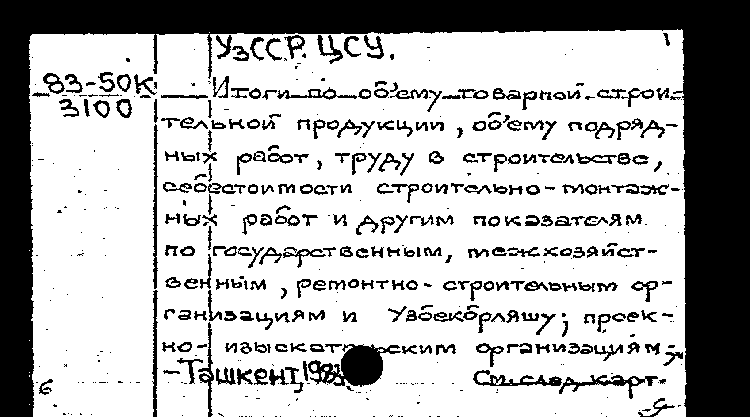 УзССР. ЦСУ. 1
83-50К
3100
Итоги по об'ему товарной строи-
тельной продукции, об'ему подряд-
ных работ, труду в строительстве,
себестоимости строительно-монтаж-
ных работ и другим показателям
по государственным, межхозяйст-
венным, ремонтно-строительным ор-
ганизациям и Узбекбрляшу; проек-
но-изыскательским организациям.
-Ташкент, 1983
См. след. карт.
6